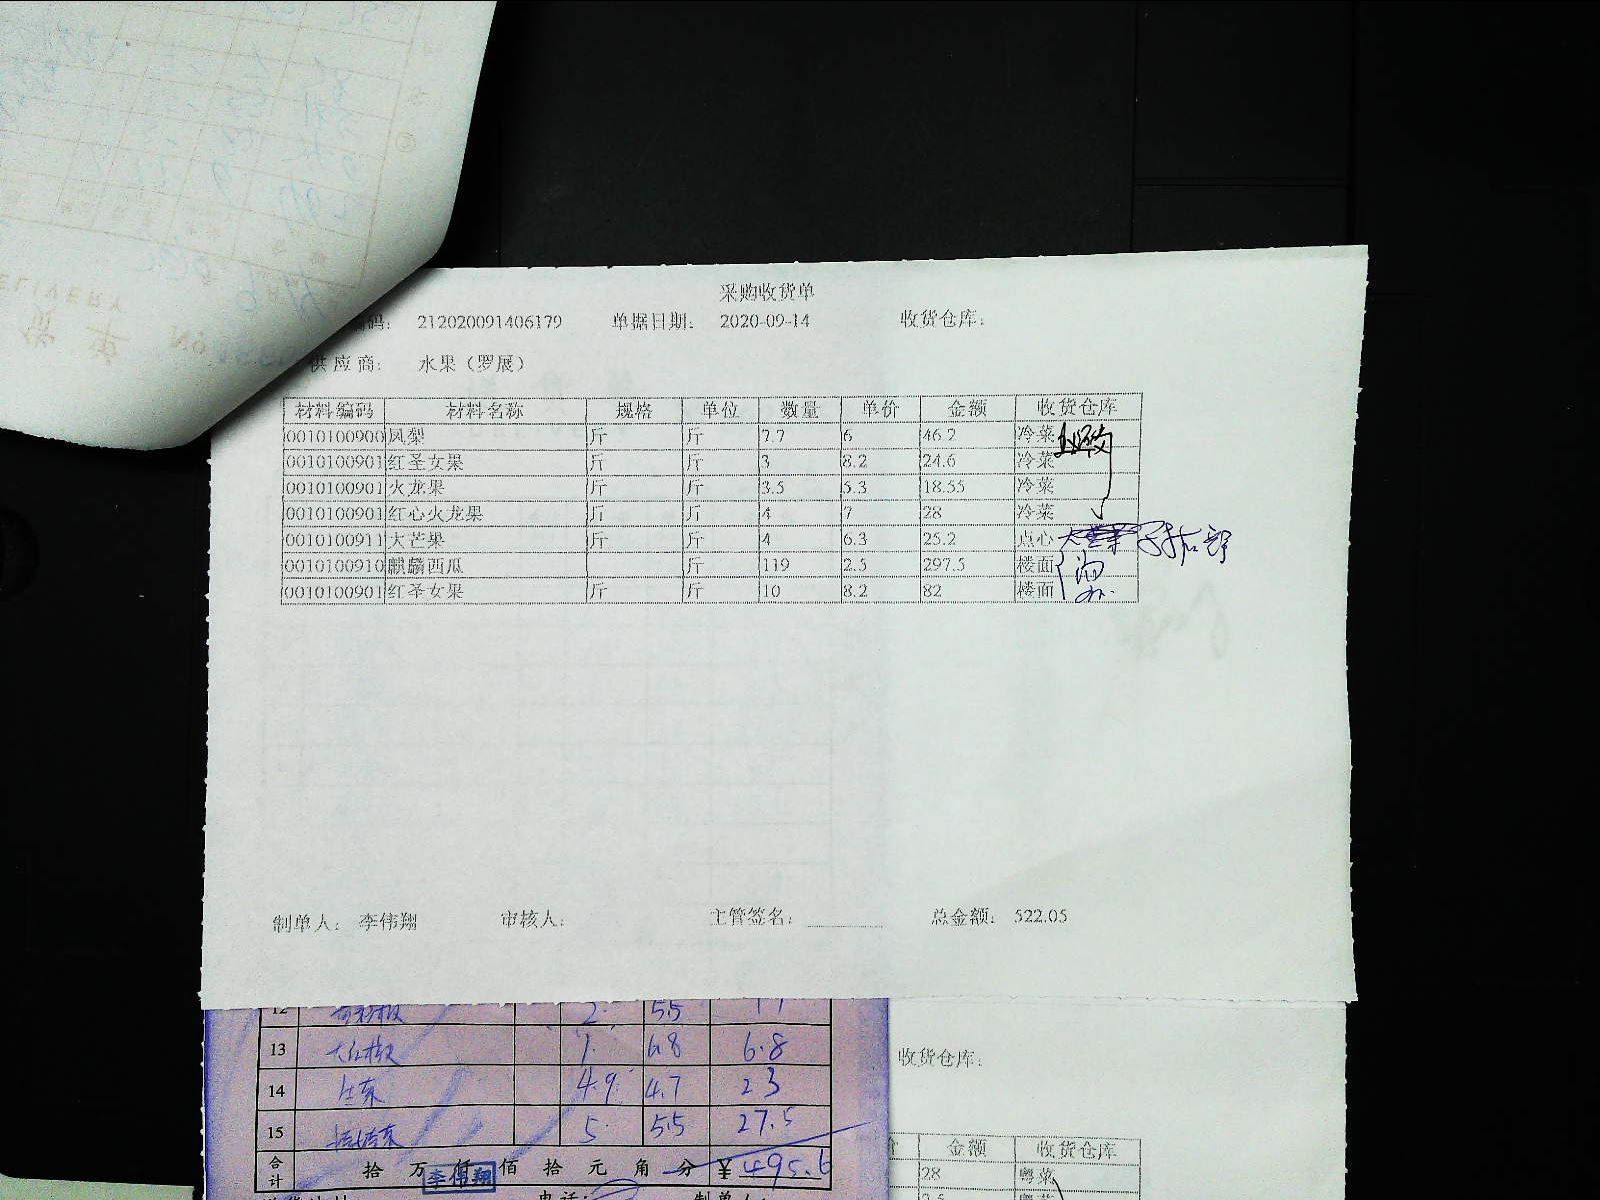 采购收货单
编码： 212020091406179 单据日期： 2020-09-14 收货仓库：
供应商： 水果（罗展）
材料编码 材料名称 规格 单位 数量 单价 金额 收货仓库
0010100900 凤梨 斤 斤 7.7 6 46.2 冷菜
0010100901 红圣女果 斤 斤 3 8.2 24.6 冷菜
0010100901 火龙果 斤 斤 3.5 5.3 18.55 冷菜
0010100901 红心火龙果 斤 斤 4 7 28 冷菜
0010100911 大芒果 斤 斤 4 6.3 25.2 点心
0010100910 麒麟西瓜 斤 119 2.5 297.5 楼面
0010100901 红圣女果 斤 斤 10 8.2 82 楼面
制单人： 李伟翔 审核人： 主管签名： 总金额： 522.05
12 2 5.5 11
13 大红椒 1 6.8 6.8
14 4.9 4.7 23
15 5 5.5 27.5
合计 拾 万 仟 佰 拾 元 角 分 ¥ 495.6
李伟翔
收货仓库：
金额 收货仓库
28 粤菜